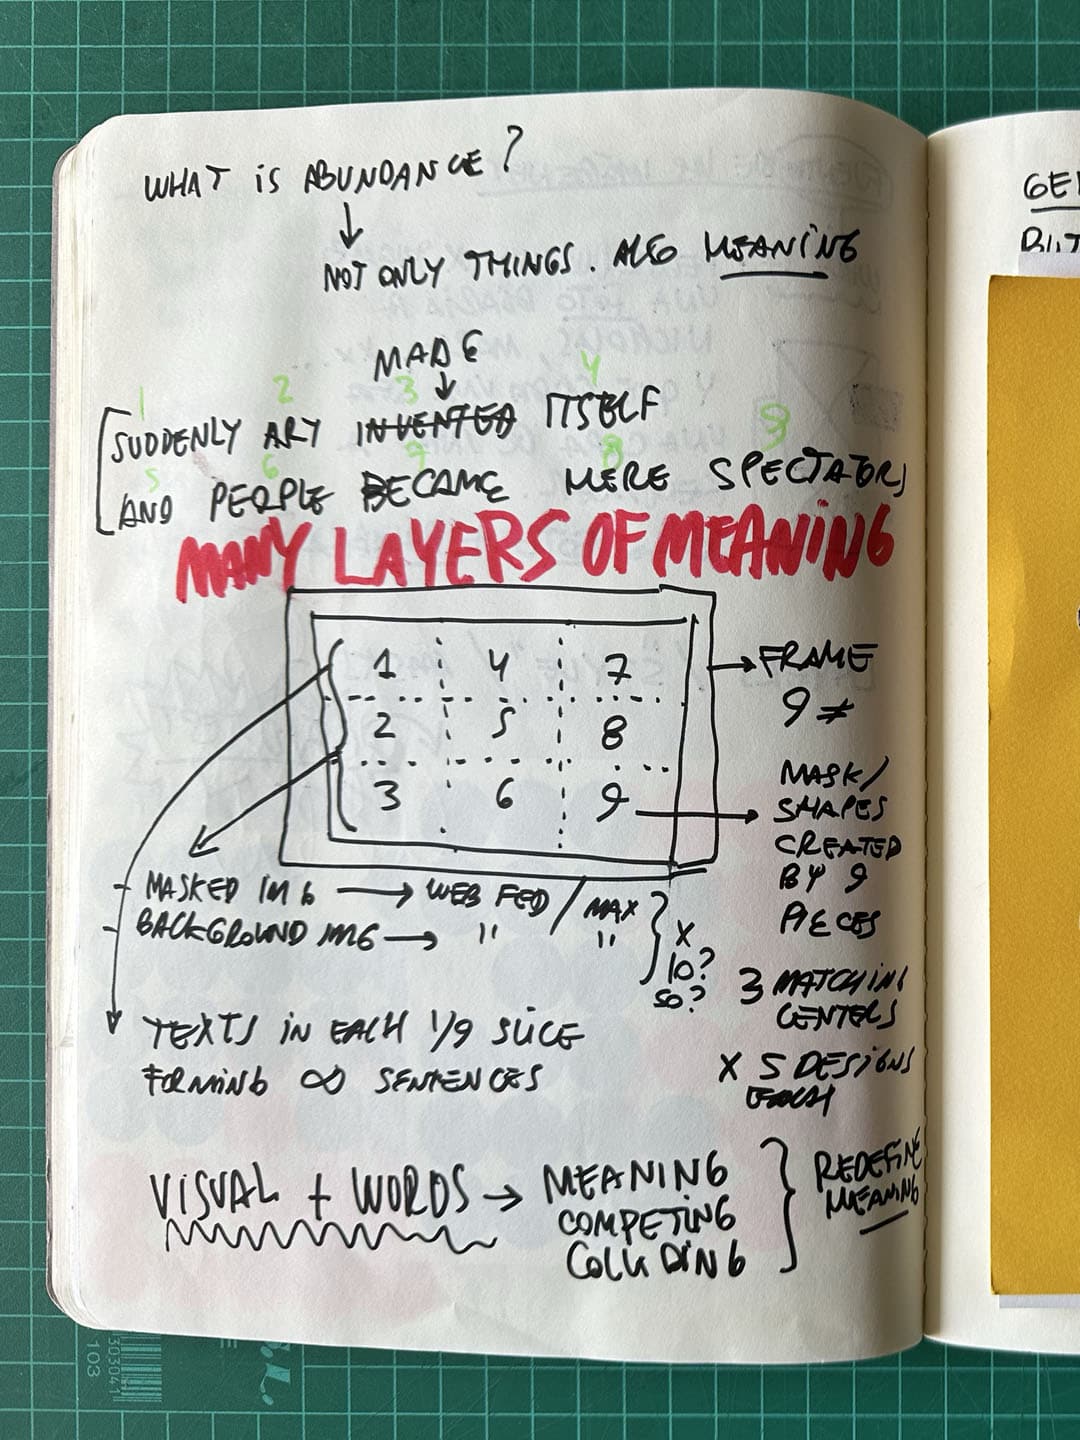 WHAT iS ABUNDANCE?
NOT ONLY THINGS. ALSO MEANiNG
MADE
1 2 3 4
SUDDENLY ART INVENTED ITSELF
5 6 7 8 9
AND PEOPLE BECAME MERE SPECTATORS
MANY LAYERS OF MEANiNG
1 4 7
2 5 8
3 6 9
FRAME
9 ≠
MASK/
SHAPES
CREATED
BY 9
PIECES
MASKED IMG → WEB FED / MAX
BACKGROUND IMG → " / "
X
10?
50?
3 MATCHING
CENTERS
X 5 DESiGNS
EACH
TEXTS iN EACH 1/9 SLICE
FORMING ∞ SENTENCES
ViSUAL + WORDS → MEANING
COMPETING
COLLIDING
REDEFINE
MEANING
GE
BUT
303041
103